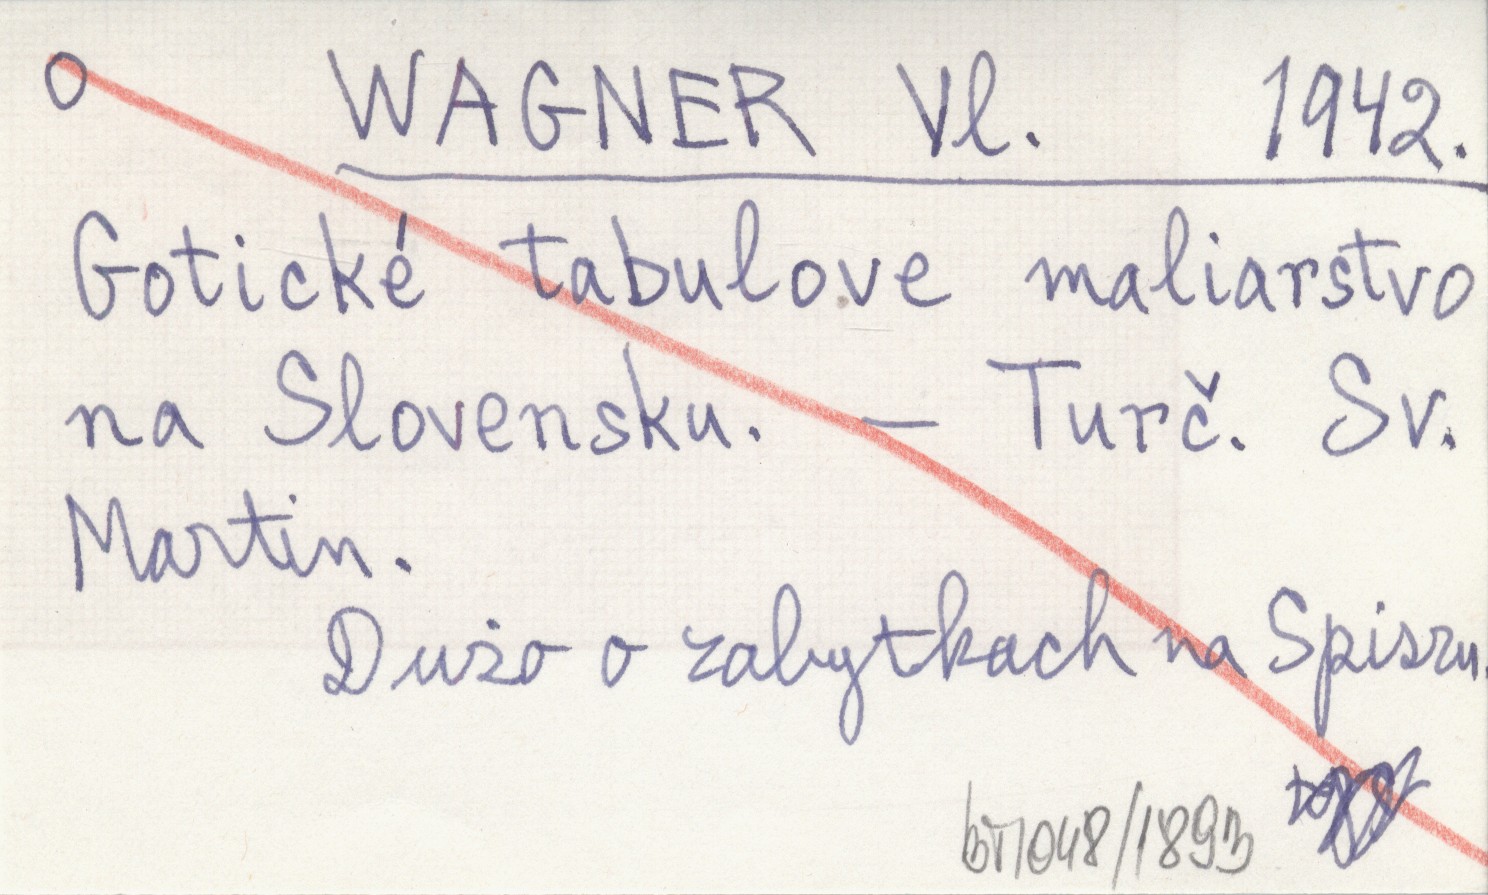 O WAGNER Vl. 1942.
Gotické tabulove maliarstvo
na Slovensku. — Turč. Sv.
Martin.
Dużo o zabytkach na Spiszu.
/1893